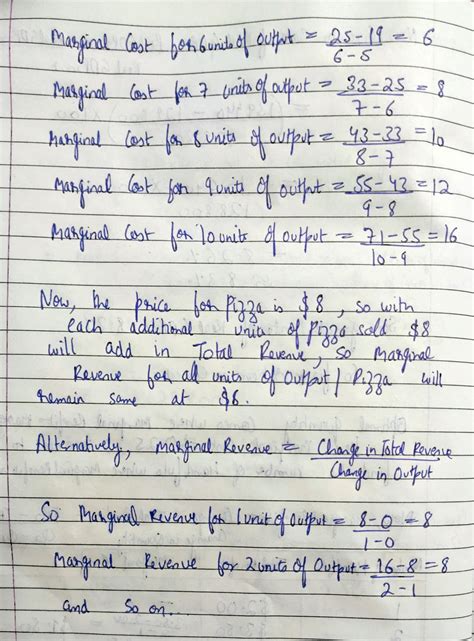 Marginal Cost for 6 units of output = 25-19 = 6
6-5
Marginal Cost for 7 units of output = 33-25 = 8
7-6
Marginal Cost for 8 units of output = 43-33 = 10
8-7
Marginal Cost for 9 units of output = 55-43 = 12
9-8
Marginal Cost for 10 units of output = 71-55 = 16
10-9
Now, the price for Pizza is $8, so with
each additional units of Pizza sold $8
will add in Total Revenue, so Marginal
Revenue for all units of Output/Pizza will
remain same at $8.
Alternatively, Marginal Revenue = Change in Total Revenue
Change in Output
So Marginal Revenue for 1 unit of Output = 8-0 = 8
1-0
Marginal Revenue for 2 units of Output = 16-8 = 8
2-1
and so on...